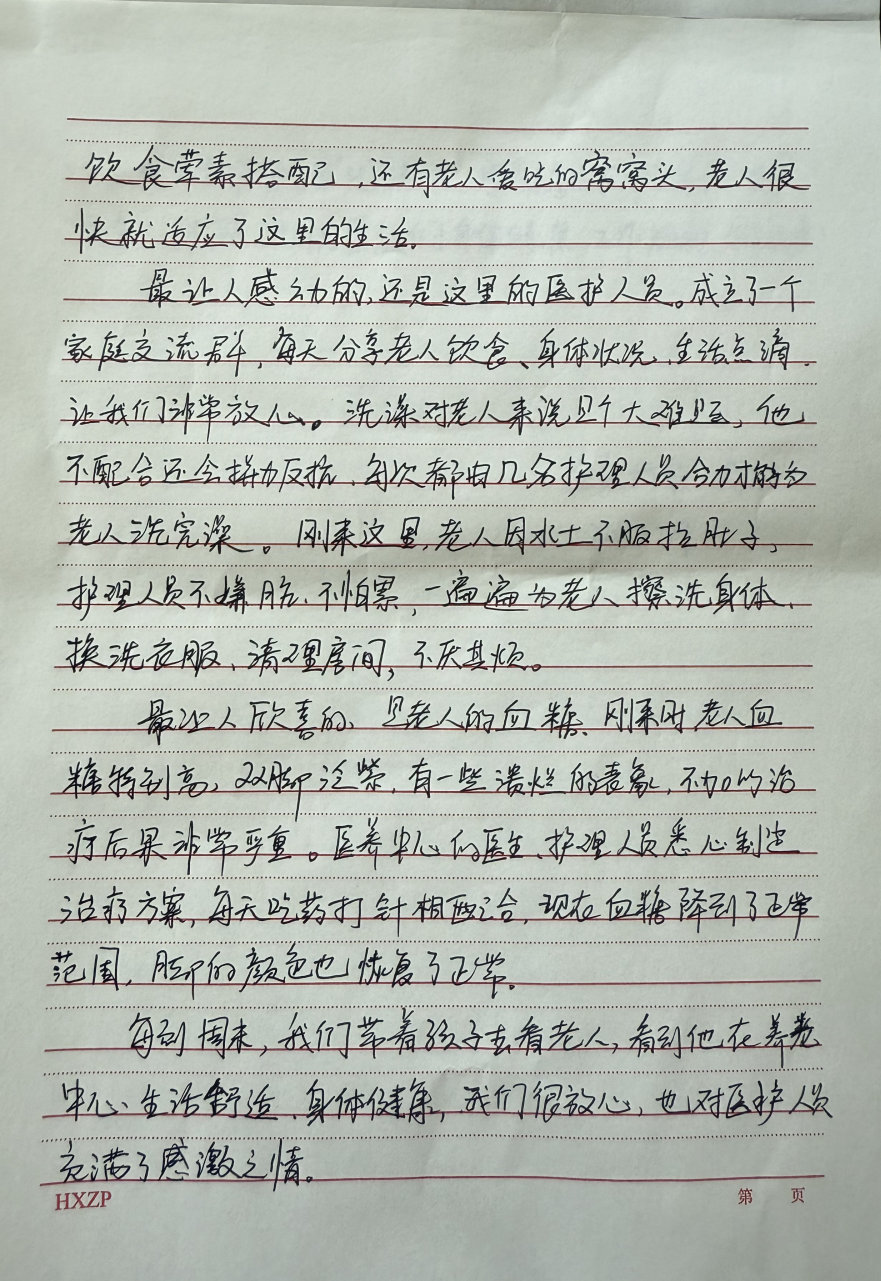 饮食荤素搭配，还有老人爱吃的窝窝头，老人很
快就适应了这里的生活。
最让人感动的，还是这里的医护人员。成立了一个
家庭交流群，每天分享老人饮食、身体状况、生活点滴，
让我们非常放心。洗澡对老人来说是个大难题，他
不配合还会拼力反抗，每次都由几名护理人员合力才能为
老人洗完澡。刚来这里，老人因水土不服拉肚子，
护理人员不嫌脏、不怕累，一遍遍为老人擦洗身体、
换洗衣服、清理房间，不厌其烦。
最让人欣喜的，是老人的血糖。刚来时老人血
糖特别高，双脚泛紫，有一些溃烂的表象，不加以治
疗后果非常严重。医养中心的医生、护理人员悉心制定
治疗方案，每天吃药打针相配合，现在血糖降到了正常
范围，脚的颜色也恢复了正常。
每到周末，我们带着孩子去看老人，看到他在养老
中心生活舒适、身体健康，我们很放心，也对医护人员
充满了感激之情。
HXZP
第 页